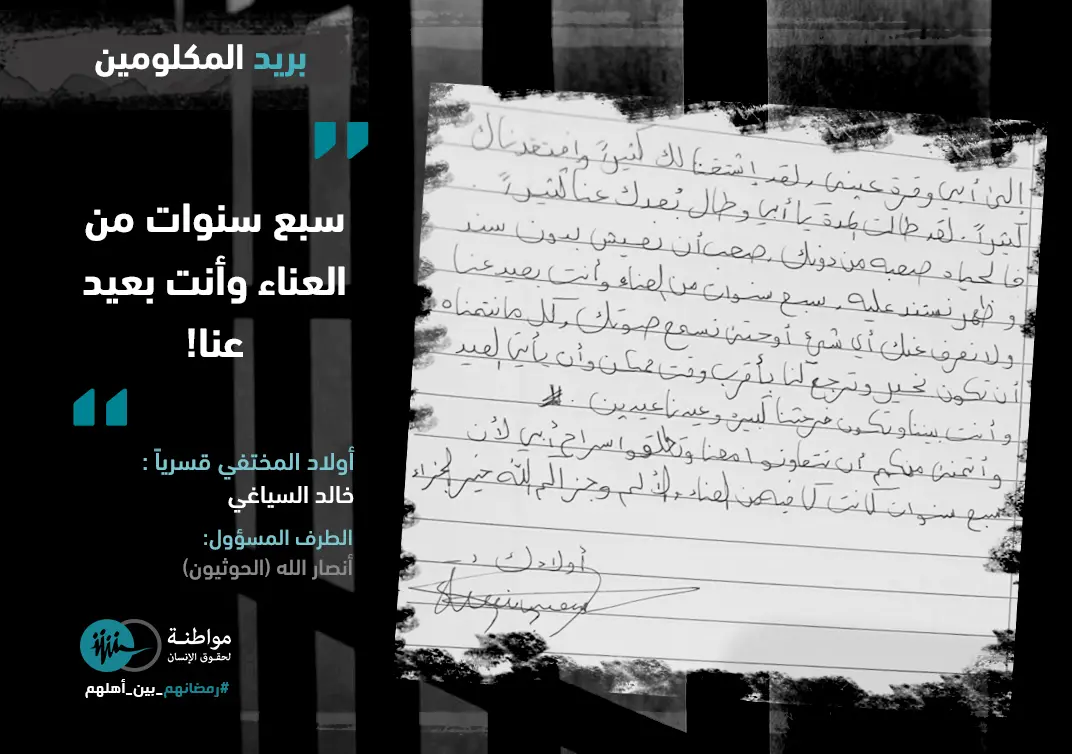 بريد المكلومين
"
سبع سنوات من
العناء وأنت بعيد
عنا!
"
أولاد المختفي قسرياً :
خالد السياغي
الطرف المسؤول:
أنصار الله (الحوثيون)
مواطنة
لحقوق الإنسان
#رمضانهم_بين_أهلهم
إلى أبي وقرة عيني، لقد إشتقنا لك كثيراً وافتقدناك
كثيراً. لقد طالت المدة يا أبي وطال بُعدك عنا كثيراً.
فالحياة صعبه من دونك، صعب أن نعيش بدون سند
وظهر نستند عليه، سبع سنوات من العناء وأنت بعيد عنا
ولا نعرف عنك أي شئ أو حتى نسمع صوتك، كل ما نتمناه
أن تكون بخير وترجع لنا بأقرب وقت ممكن وأن يأتي العيد
وأنت بيننا وتكون فرحتنا كبيره وعيدنا عيدين.
وأتمنى منكم أن تتعاونوا معنا وتطلقوا سراح أبي لأن
سبع سنوات كانت كافيه من العناء والألم وجزاكم الله خير الجزاء
أولادك